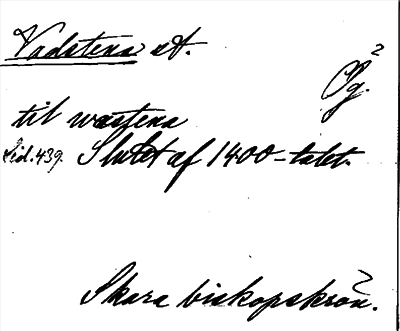 Vadstena st.
Ög. 2
til wastena
Sid. 439. Slutet af 1400-talet.
Skara biskopskrön.